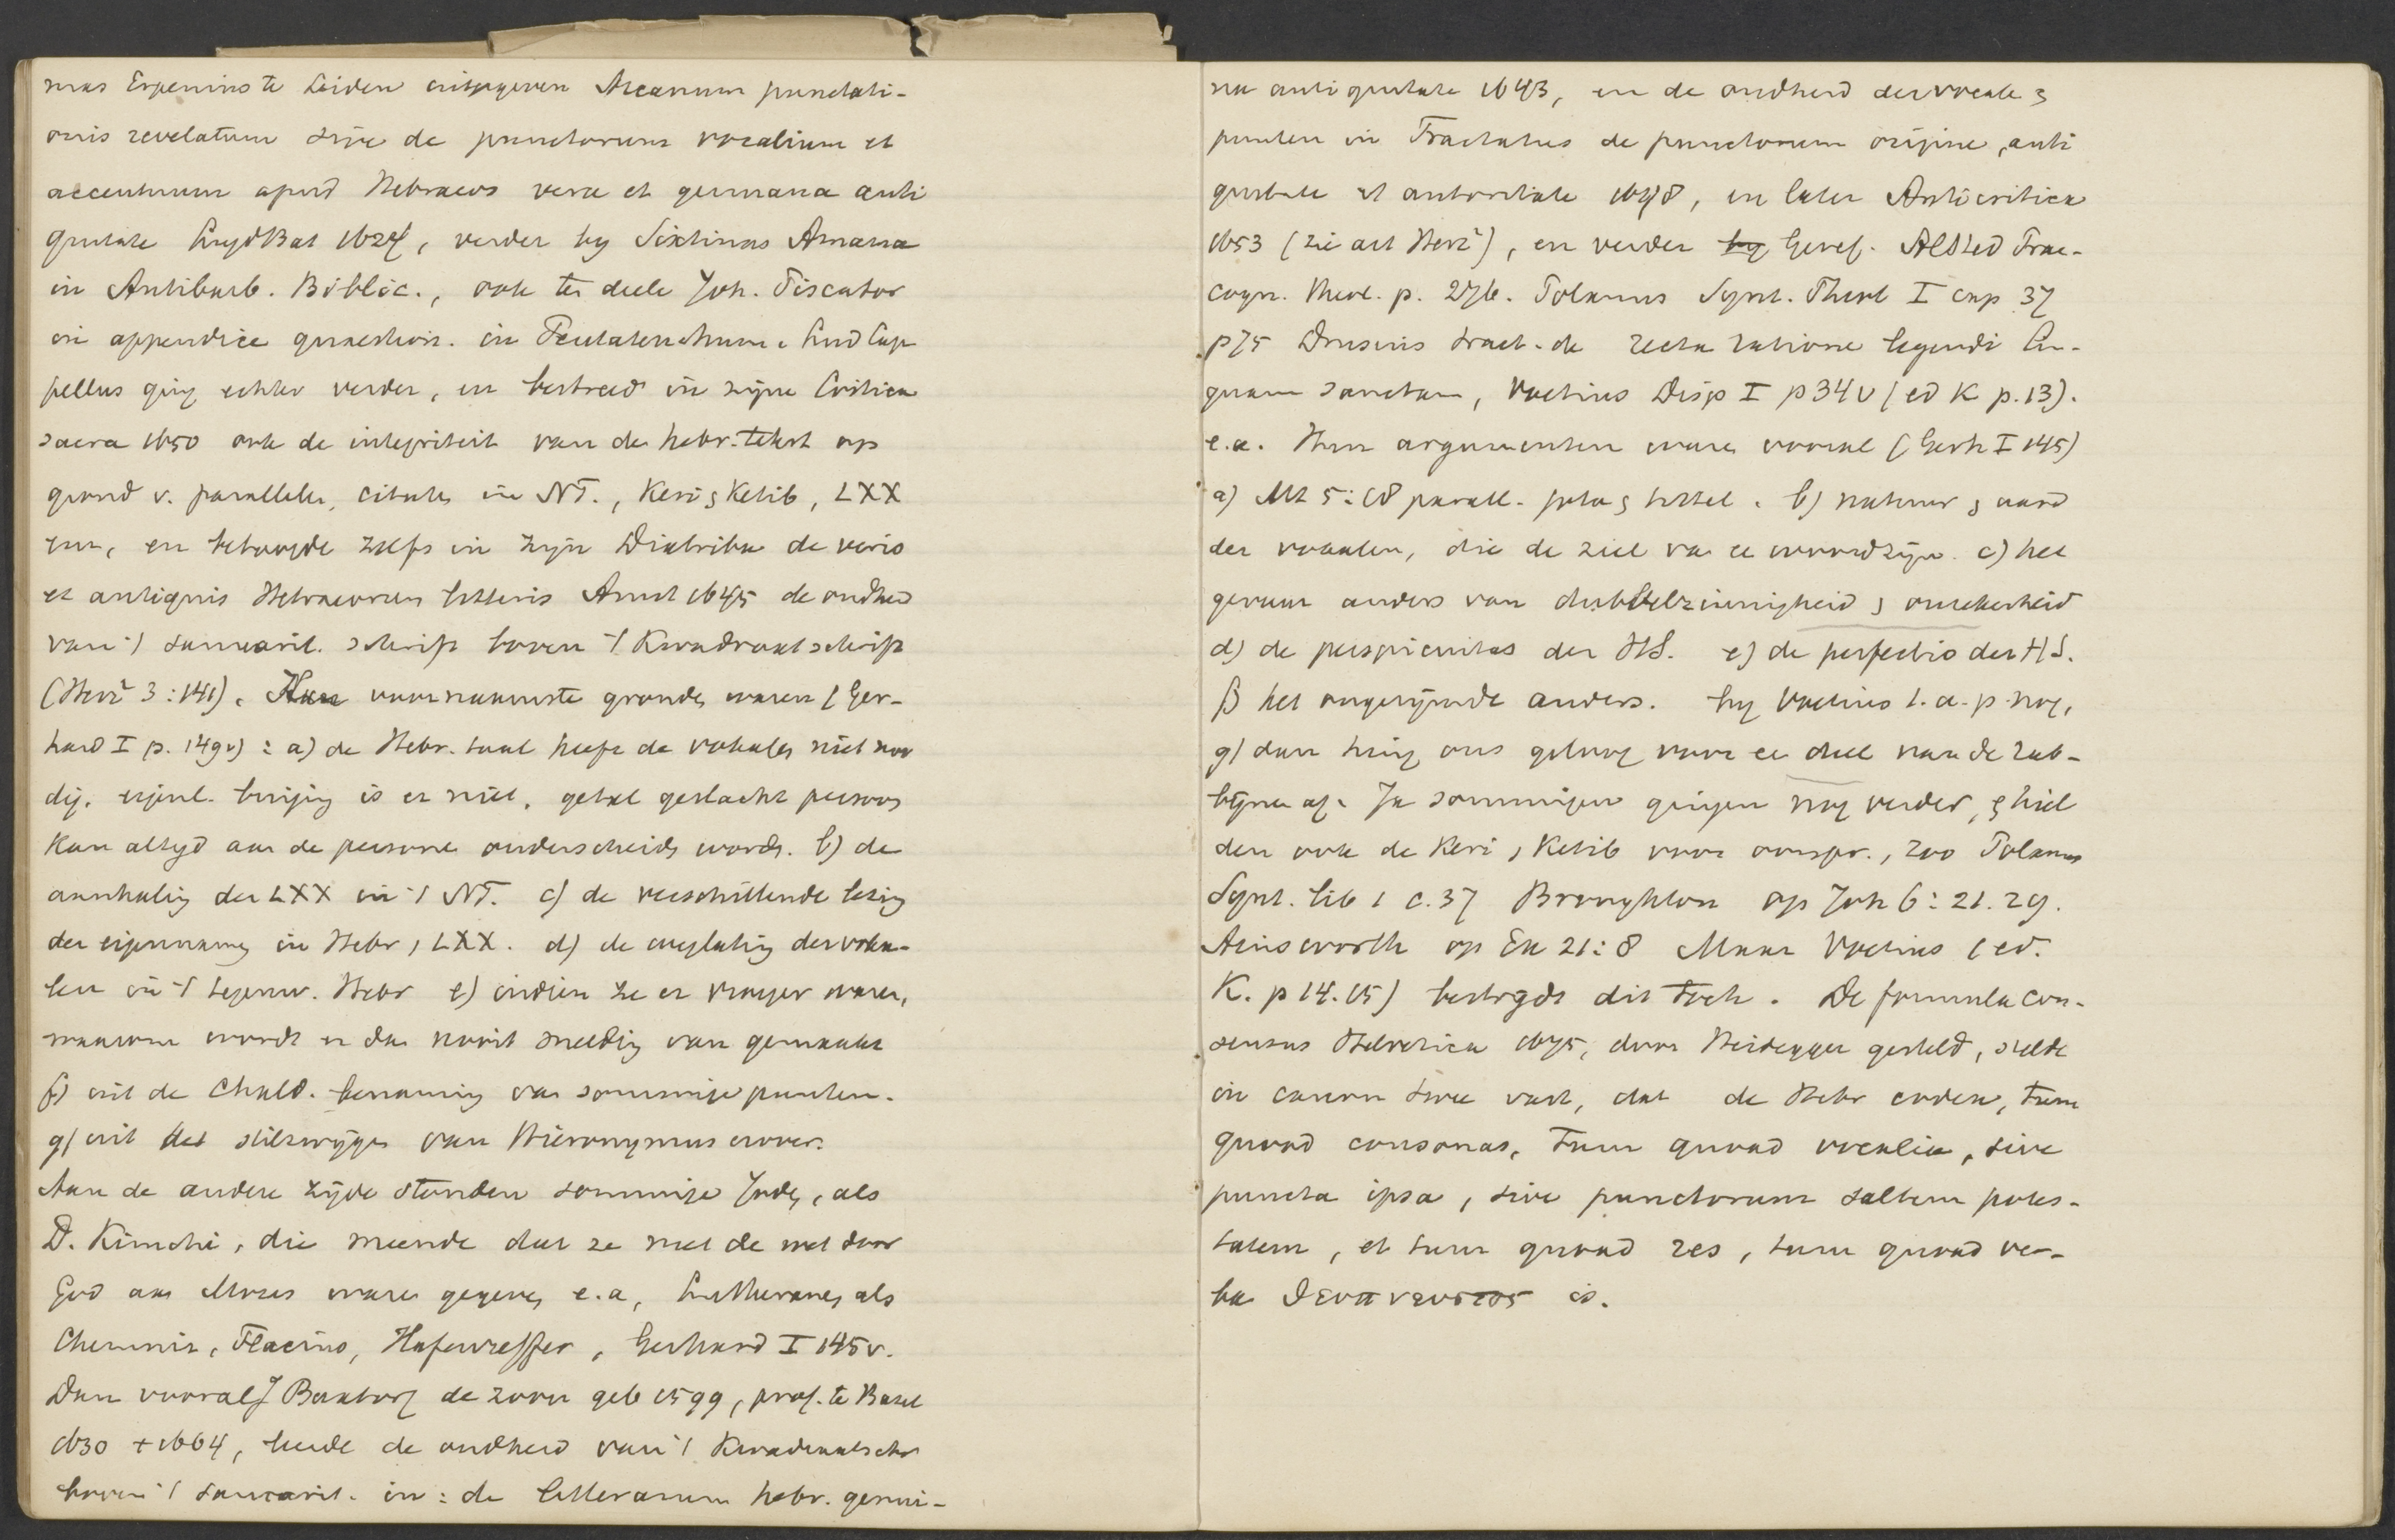 mas Erpenius te Leiden uitgegeven Arcanum punctati-
onis revelatum sive de punctorum vocalium et
accentuum apud Hebraeos vera et germana anti
quitate LugdBat 1624, verder by Sixtinus Amama
in Antibarb. Biblic., ook ten deele Joh. Piscator
in appendice quaestion. in Pentateuchum. Lud Cap
pellus ging echter verder, en bestreed in zijne Critica
sacra 1650 ook de integriteit van de hebr. tekst op
grond v. parallelen, citaten in NT., Keri & Ketib, LXX
enz, en betoogde zelfs in zijn Diatribe de veris
et antiquis Hebraeorum litteris Amst 1645 de oudheid
van 't samarit. schrift boven 't Kwadraatschrift
(Herz² 3:141). Hun voornaamste gronden waren (Ger-
hard I p. 149v): a) de Hebr. taal heeft de vokalen niet noo
dig. eigenl. buiging is er niet, getal geslacht persoon
kan altyd aan de persone onderscheiden worden. b) de
aanhaling der LXX in 't NT. c) de verschillende lezing
der eigennamen in Hebr, LXX. d) de weglating der voka-
len in 't tegenw. Hebr e) indien ze er vroeger waren,
waarom wordt er dan nooit melding van gemaakt
f) uit de Chald. benaming van sommige punten.
g) uit het stilzwijgen van Hieronymus erover.
Aan de andere zijde stonden sommige Joden, als
D. Kimchi, die meende dat ze met de wet door
God aan Mozes waren gegeven e.a, Lutheranen als
Chemniz, Flacius, Hafenreffer, Gerhard I 145v.
Dan vooral J Buxtorf de zoon geb 1599, prof. te Basel
1630 + 1664, leerde de oudheid van 't Kwadraatschr
boven 't samarit. in: de litterarum hebr. genui-
na antiquitate 1643, en de oudheid der vocale &
punten in Tractatus de punctorum origine, anti
quitate et autoritate 1648, en later Anticritica
1653 (zie art Herz²), en verder by Geref. Alsted Prae-
cogn. theol. p. 276. Polanus Synt. Theol I cap 37
p 75 Drusius tract. de recta ratione legendi lin-
guam sanctam, Voetius Disp I p 34v (ed K p. 13).
e.a. Hun argumenten waren vooral (Gerh I 145)
a) Mt 5:18 parall. jota & tittel. b) natuur & aard
der vokalen, die de ziel van ee woord zijn. c) het
gevaar anders van dubbelzinnigheid & onzekerheid
d) de perspicuitas der HS. e) de perfectio der H S.
f) het ongerijmde anders. by Voetius l.a. p. nog,
g) dan hing ons geloof voor ee deel van de rab-
bijnen af. Ja sommigen gingen nog verder, & hiel
den ook de Keri, Ketib voor oorspr., zoo Polanus
Synt. lib 1 c. 37 Broughton op Joh 6: 21. 29.
Ainsworth op Ex 21:8 Maar Voetius (ed.
K. p 14. 15) bestrijdt dit toch. De formula con-
sensus Helvetica 1675, door Heidegger gesteld, stelde
in canon twee vast, dat de Hebr codex, tum
quoad consonas, tum quoad vocalia, sive
puncta ipsa, sive punctorum saltem potes-
tatem, et tum quoad res, tum quoad ver-
ba θεοπνευστος is.